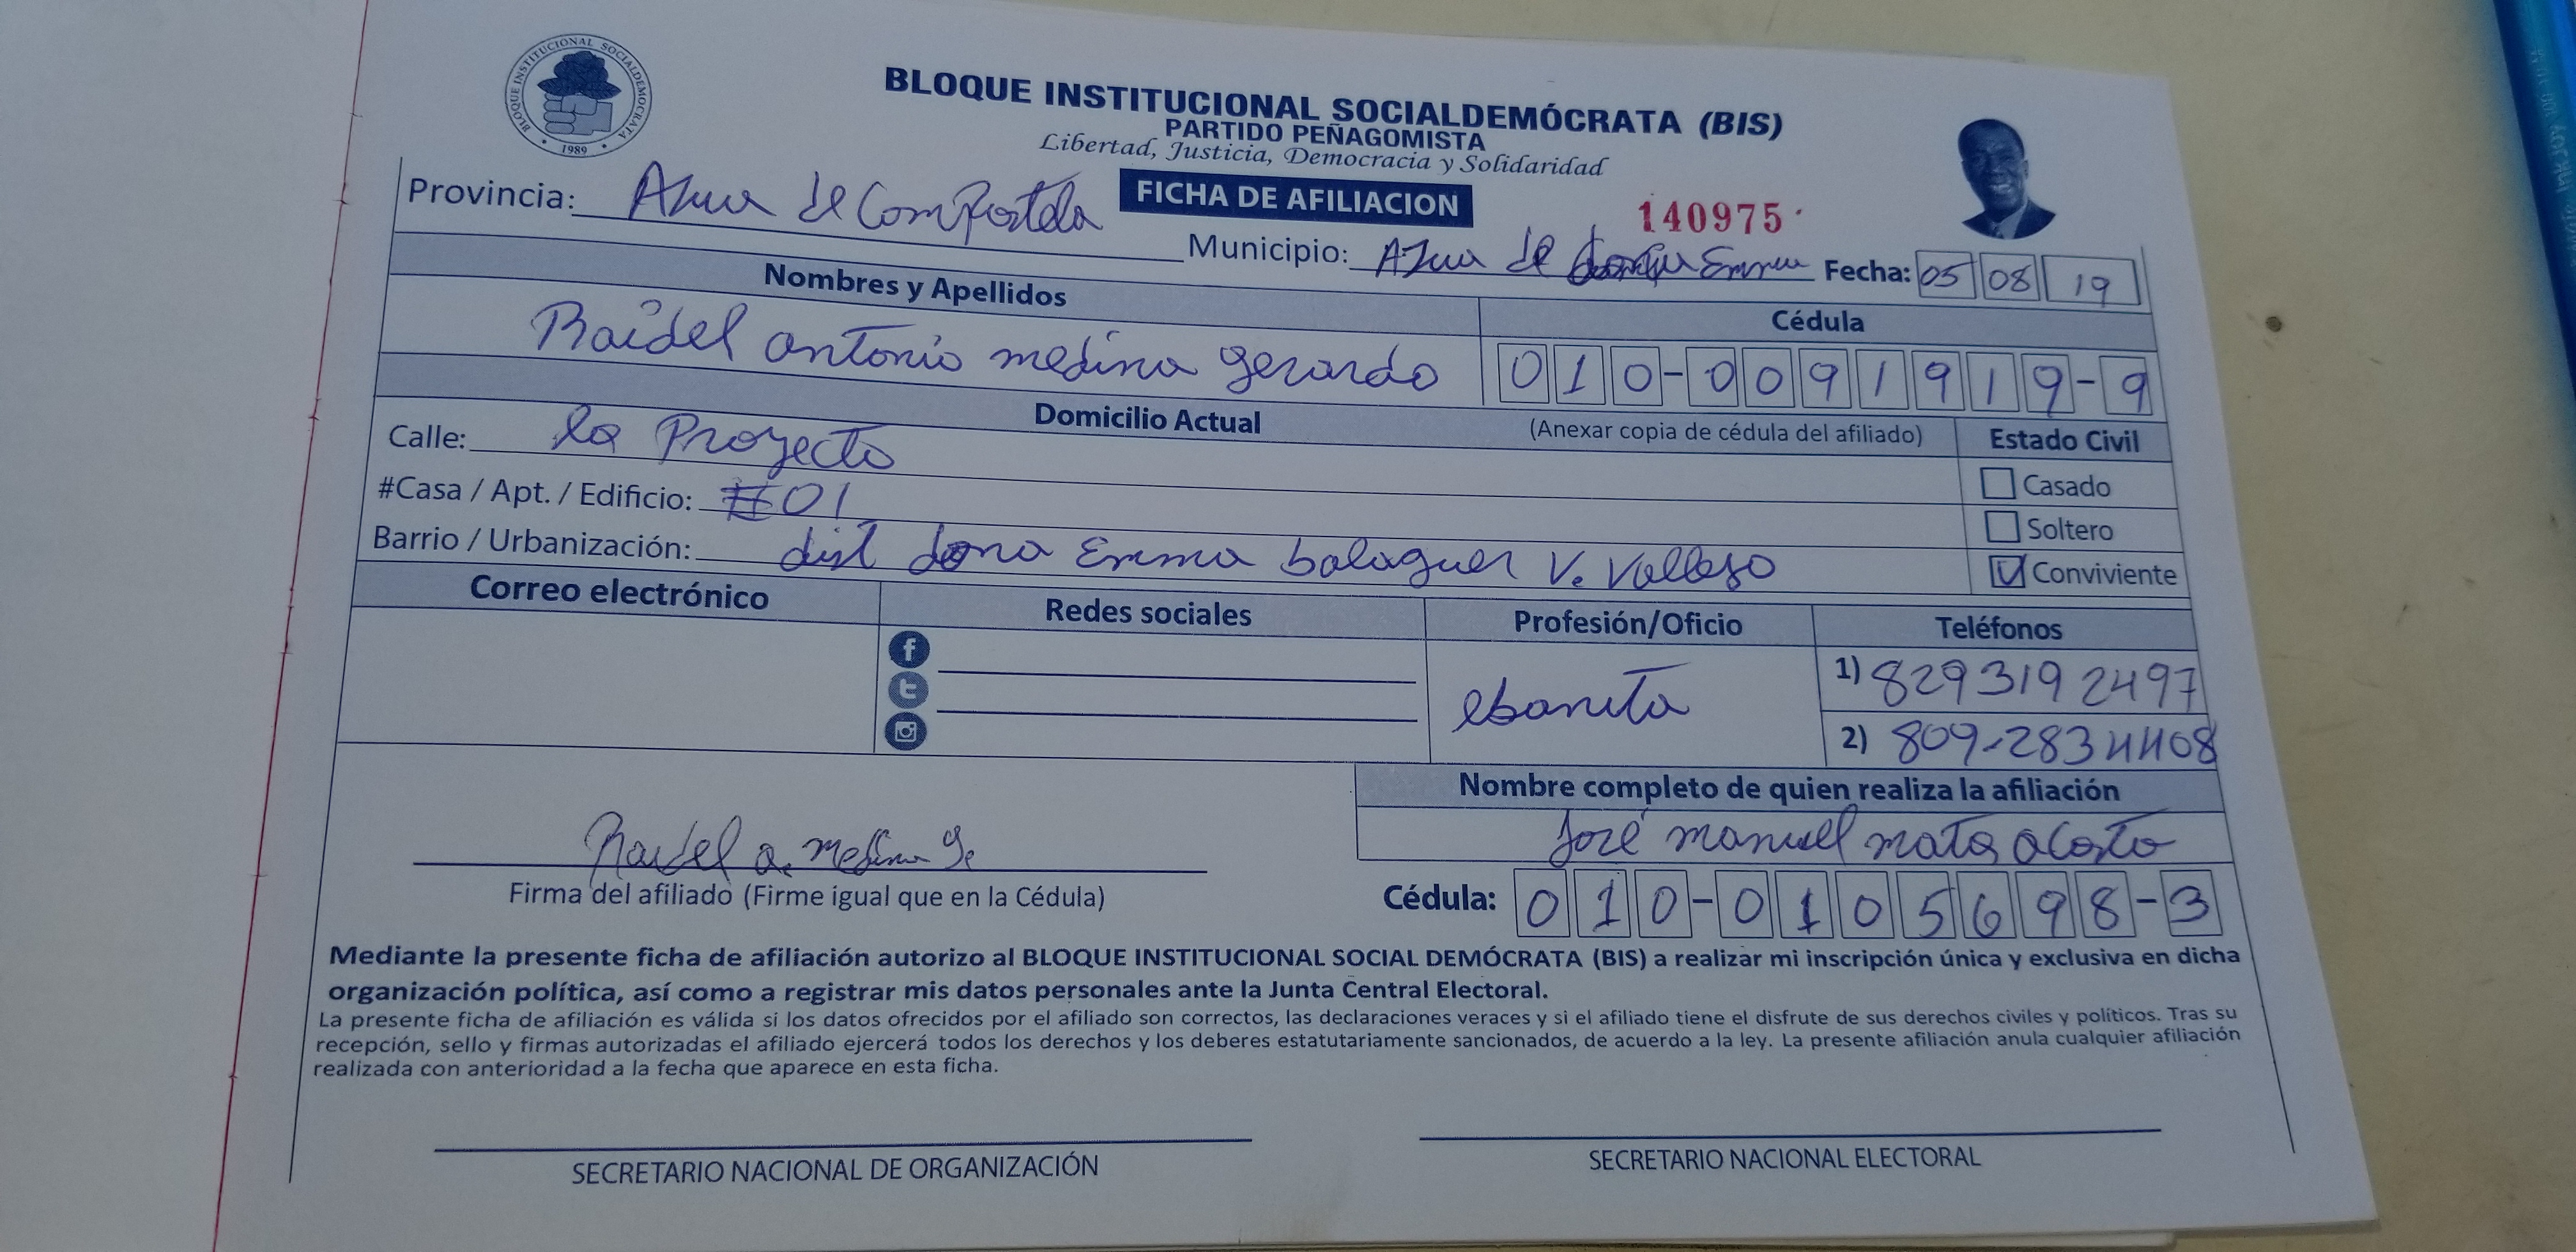 BLOQUE INSTITUCIONAL SOCIALDEMOCRATA
1989
BLOQUE INSTITUCIONAL SOCIALDEMÓCRATA (BIS)
PARTIDO PEÑAGOMISTA
Libertad, Justicia, Democracia y Solidaridad
FICHA DE AFILIACION
140975
Provincia: Azua de Compostela
Municipio: Azua de Emma Fecha: 05 08 19
Nombres y Apellidos
Cédula
Raidel antonio medina gerardo
010-0091919-9
Domicilio Actual
(Anexar copia de cédula del afiliado)
Estado Civil
Calle: la Proyecto
Casado
#Casa / Apt. / Edificio: #01
Soltero
Barrio / Urbanización: dist dona Emma balaguer V. Vallejo
Conviviente
Correo electrónico
Redes sociales
Profesión/Oficio
Teléfonos
ebanita
1) 829 319 2497
2) 809-283 4408
Nombre completo de quien realiza la afiliación
José manuel mata acosta
Raidel a. medina ge
Firma del afiliado (Firme igual que en la Cédula)
Cédula: 010-0105698-3
Mediante la presente ficha de afiliación autorizo al BLOQUE INSTITUCIONAL SOCIAL DEMÓCRATA (BIS) a realizar mi inscripción única y exclusiva en dicha
organización política, así como a registrar mis datos personales ante la Junta Central Electoral.
La presente ficha de afiliación es válida si los datos ofrecidos por el afiliado son correctos, las declaraciones veraces y si el afiliado tiene el disfrute de sus derechos civiles y políticos. Tras su
recepción, sello y firmas autorizadas el afiliado ejercerá todos los derechos y los deberes estatutariamente sancionados, de acuerdo a la ley. La presente afiliación anula cualquier afiliación
realizada con anterioridad a la fecha que aparece en esta ficha.
SECRETARIO NACIONAL DE ORGANIZACIÓN
SECRETARIO NACIONAL ELECTORAL